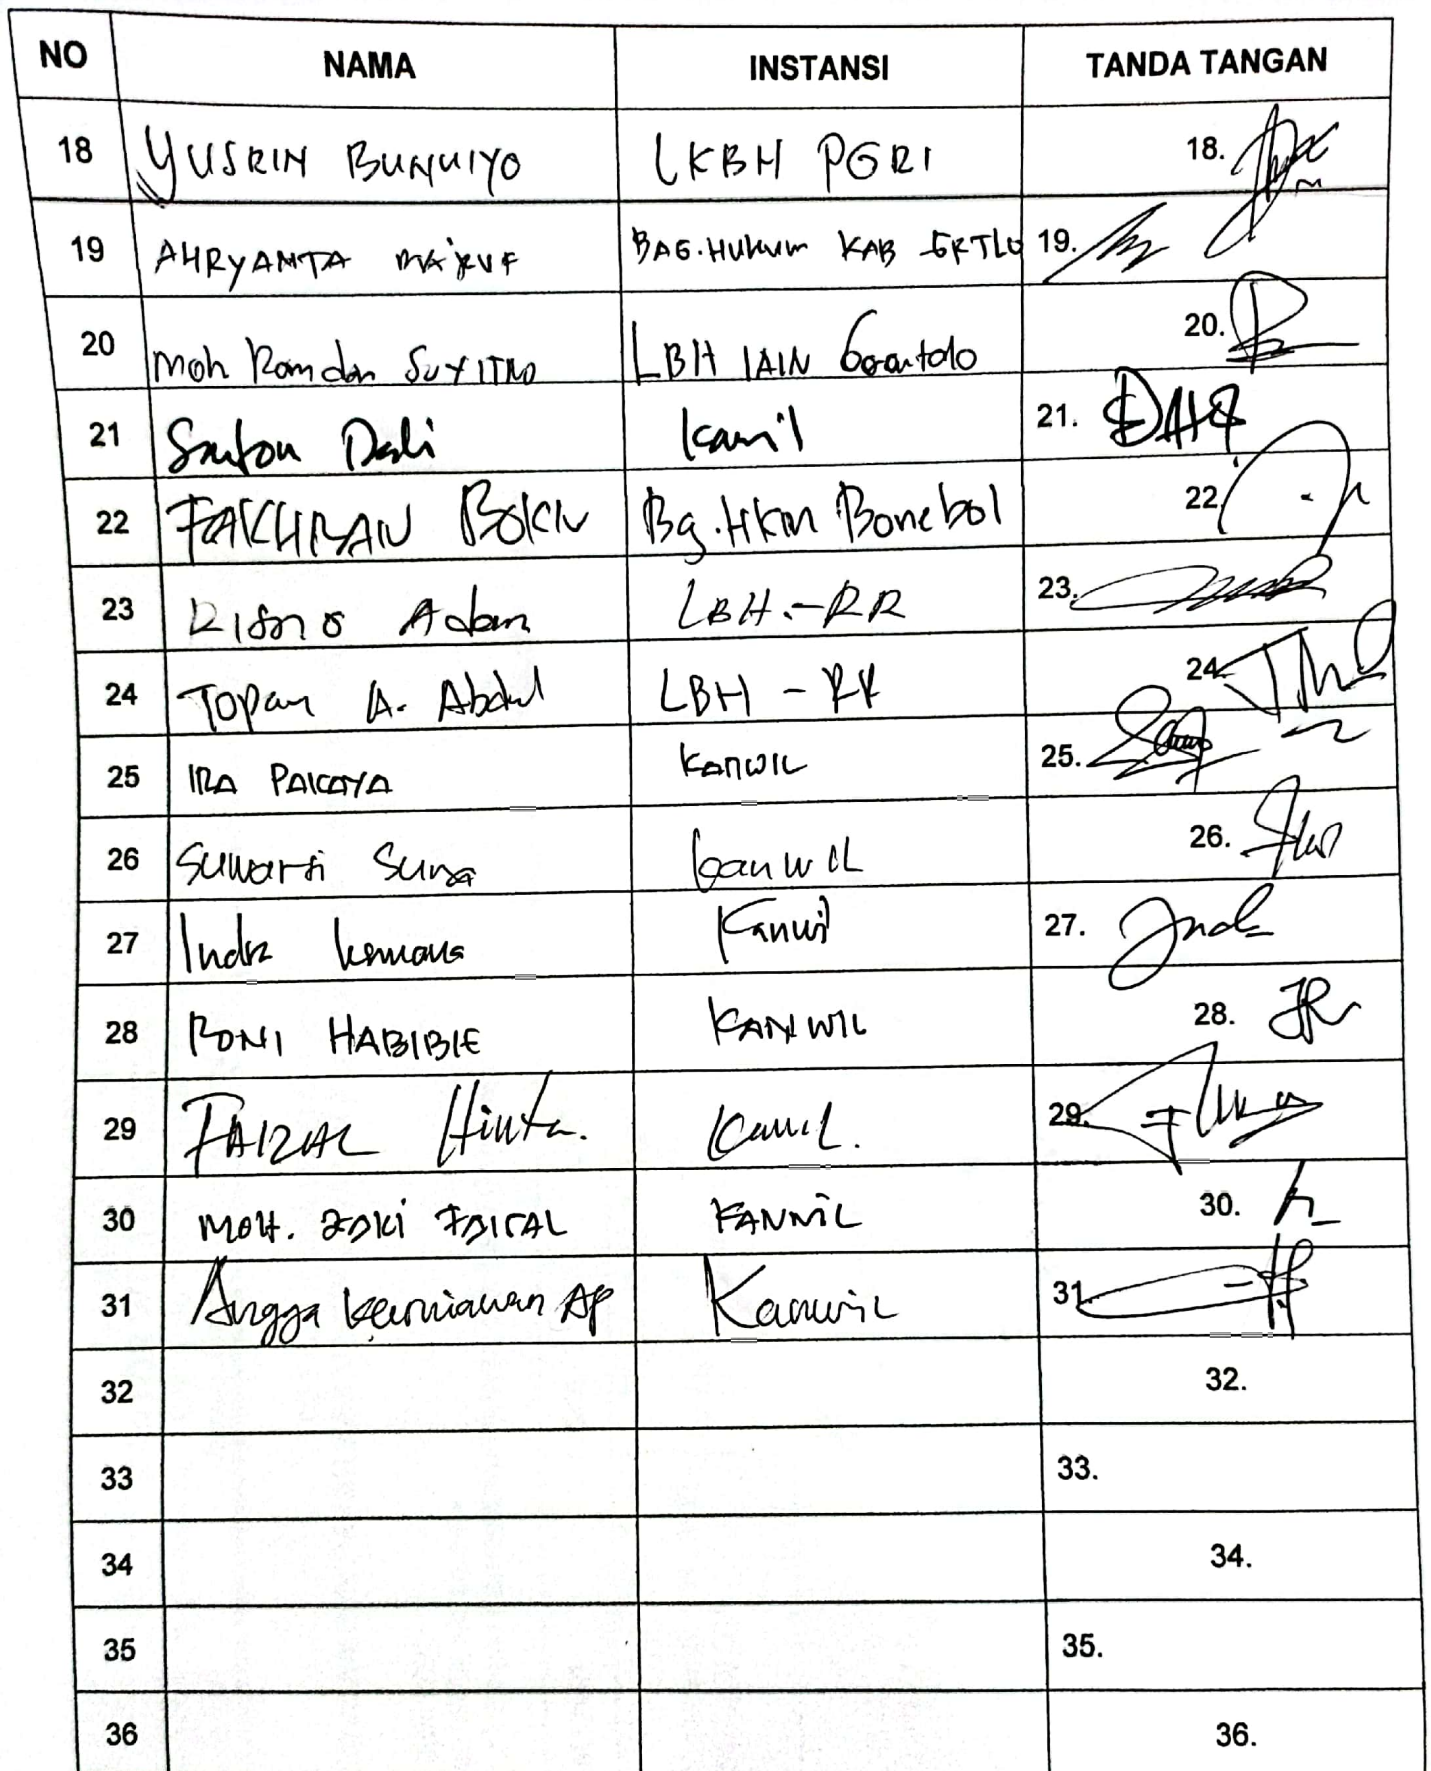 NO NAMA INSTANSI TANDA TANGAN
18 YUSRIN BUNUIYO LKBH PGRI 18.
19 AHRYANTA MA'RUF BAG.HUKUM KAB GRTLO 19.
20 Moh Ramdan SUYITNO LBH IAIN Gorontalo 20.
21 Dali Kanwil 21.
22 FAKHRAN BOKIU Bg.Hkm Bonebol 22.
23 Risno Adam LBH.-RR 23.
24 Topan A. Abdul LBH - RR 24.
25 IRA PAKAYA KANWIL 25.
26 Suwarti Suna kanwil 26.
27 Indra Kanwil 27.
28 RONI HABIBIE KANWIL 28.
29 FAIZAL Hinta. Kanwil. 29.
30 MOH. ZAKI FAISAL KANWIL 30.
31 Angga Kurniawan AP Kanwil 31.
32 32.
33 33.
34 34.
35 35.
36 36.